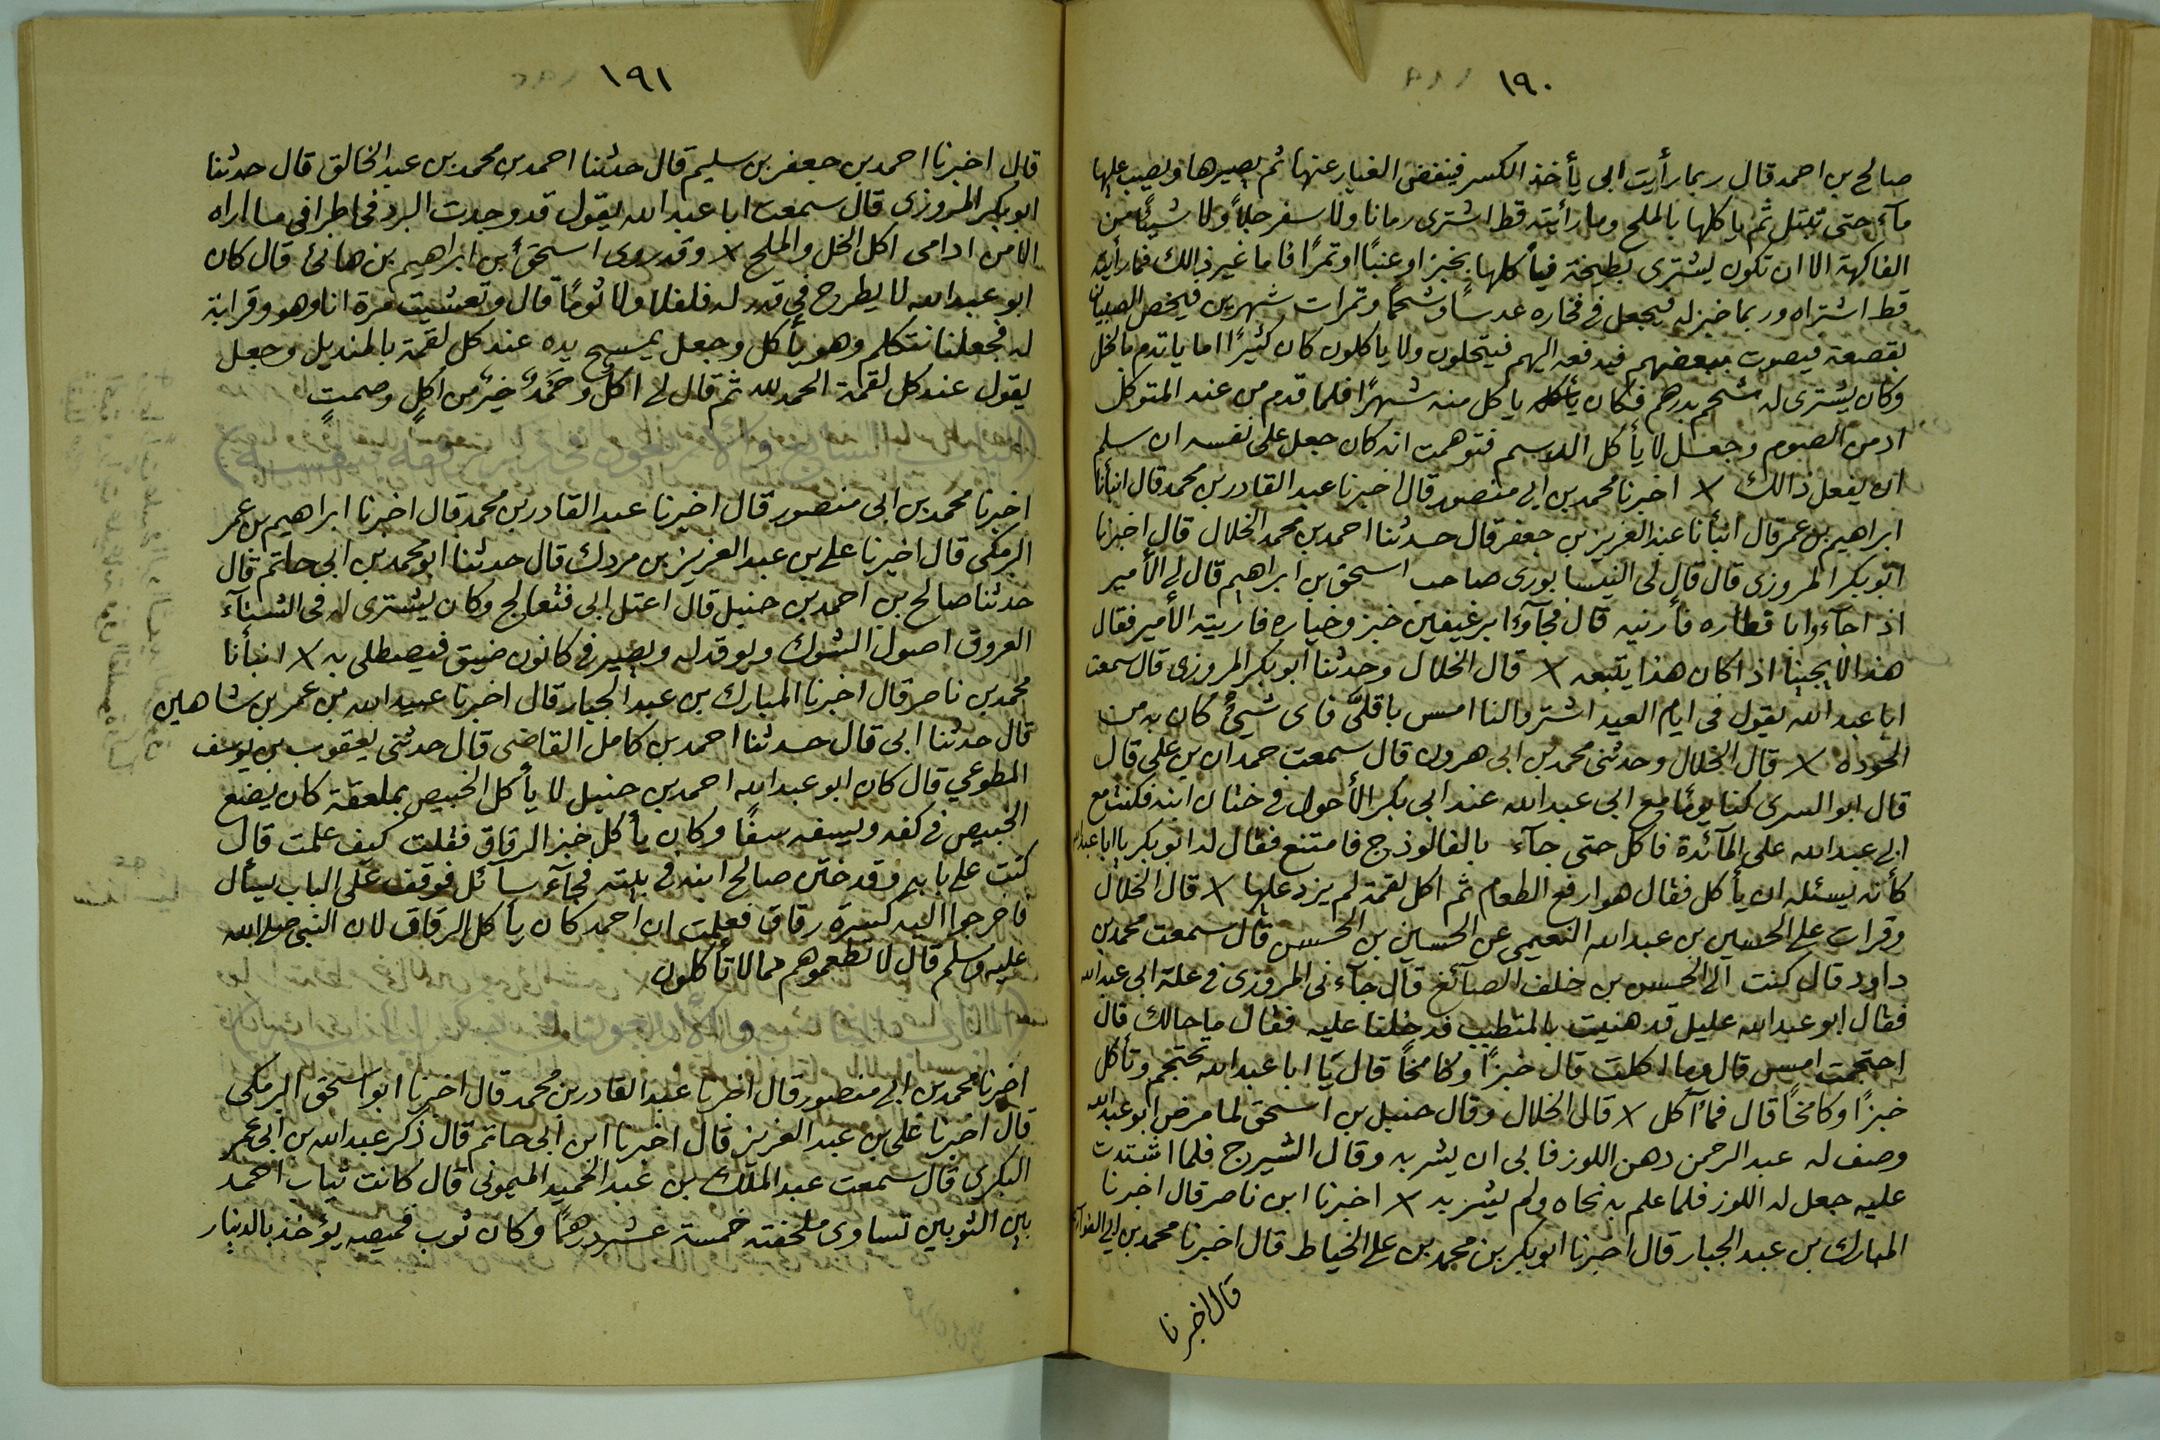 ١٩٠
صالح بن احمد قال ربما رأيت ابى يأخذ الكسر فينفض الغبار عنها ثم يصيرها ويصب عليها
مآء حتى تبتل ثم ياكلها بالملح وما رأيته قط اشترى رمانا ولا سفرجلاً ولا شيئًا من
الفاكهة الا ان تكون ليشترى بطيخة فيأكلها بخبز او عنبًا او تمرًا فاما غير ذالك فما رأيته
قط اشتراه وربما خبز له فيجعل فى فخاره عدسًا وشحمًا وتمرات شهريز فيخص الصبيان
بقصعة فيصوت ببعضهم فيدفعه اليهم فيتحلون ولا ياكلون كان كثيرًا اما ياتدم بالخل
وكان يشترى له شحم بدرهم فكان يأكله ياكل منه شهرًا فلما قدم من عند المتوكل
ادمن الصوم وجعل لا يأكل الدسم فتوهمت انه كان جعل على نفسه ان سلم
ان يفعل ذالك × اخبرنا محمد بن ابي منصور قال اخبرنا عبد القادر بن محمد قال انبأنا
ابراهيم بن عمر قال انبأنا عبد العزيز بن جعفر قال حدثنا احمد بن محمد الخلال قال اخبرنا
ابو بكر المروزى قال قال لى النيسابورى صاحب اسحق بن ابراهيم قال لى الأمير
اذا جآءوا با فطاره فأرنيه قال فجآءوا برغيفين خبز وخياره فاريته الأمير فقال
هذا لا يجيبنا اذا كان هذا يتبعه × قال الخلال وحدثنا ابو بكر المروزى قال سمعت
ابا عبد الله يقول فى ايام العيد اشتروا لنا امس باقلّى فاى شيئٍ كان به من
الجوده × قال الخلال وحدثنى محمد بن ابى هرون قال سمعت حمدان بن على قال
قال ابو السرى كنا يومًا مع ابى عبد الله عند ابى بكر الأحول فى ختان ابنه فكنت مع
ابى عبد الله على المآئدة فاكل حتى جآء بالفالوذج فامتنع فقال له ابو بكر يا ابا عبد الله
كأنه يسئله ان يأكل فقال هو ارفع الطعام ثم اكل لقمة لم يزد عليها × قال الخلال
وقرات على الحسين بن عبد الله النعيمى عن الحسين بن الحسن قال سمعت محمد بن
داود قال كنت الى الحسن بن خلف الصآئغ قال جآءنى المروزى فى علة ابى عبد الله
فقال ابو عبد الله عليل قد هنيت بالمتطبب فدخلنا عليه فقال ما حالك قال
احتجمت امس قال وما اكلت قال خبزًا وكامخًا قال يا ابا عبد الله تحتجم وتأكل
خبزًا وكامخًا قال فما آكل × قال الخلال وقال حنبل بن اسحق لما مرض ابو عبد الله
وصف له عبد الرحمن دهن اللوز فابى ان يشربه وقال الشيرج فلما اشتدت
عليه جعل له اللوز فلما علم به نحاه ولم يشربه × اخبرنا ابن ناصر قال اخبرنا
المبارك بن عبد الجبار قال اخبرنا ابو بكر بن محمد بن على الخياط قال اخبرنا محمد بن ابى الفوارس
قال اخبرنا
١٩١
قال اخبرنا احمد بن جعفر بن سليم قال حدثنا احمد بن محمد بن عبد الخالق قال حدثنا
ابو بكر المروزى قال سمعت ابا عبد الله يقول قد وجدت البرد فى اطرافى ما اراه
الا من ادامى اكل الخل والملح × وقد روى اسحق بن ابراهيم بن هانئ قال كان
ابو عبد الله لا يطرح فى قدر له فلفلا ولا ثومًا قال وتعشيت مرة انا وهو وقرابة
له فجعلنا نتكلم وهو يأكل وجعل يمسح يده عند كل لقمة بالمنديل وجعل
يقول عند كل لقمة الحمد لله ثم قال لى اكل وحَمْدٌ خيرٌ من اكلٍ وصمتٍ
اخبرنا محمد بن ابى منصور قال اخبرنا عبد القادر بن محمد قال اخبرنا ابراهيم بن عمر
البرمكى قال اخبرنا على بن عبد العزيز بن مردك قال حدثنا ابو محمد بن ابى حاتم قال
حدثنا صالح بن احمد بن حنبل قال اعتل ابى فتعالج وكان يشترى له فى الشتآء
العروق اصول الشوك ويوقد له ويصير فى كانون ضيق فيصطلى به × انبأنا
محمد بن ناصر قال اخبرنا المبارك بن عبد الجبار قال اخبرنا عبيد الله بن عمر بن شاهين
قال حدثنا ابى قال حدثنا احمد بن كامل القاضى قال حدثنى يعقوب بن يوسف
المطوعي قال كان ابو عبد الله احمد بن حنبل لا يأكل الخبيص بملعقة كان يضع
الخبيص فى كفه ويسفه سفًا وكان يأكل خبز الرقاق فقلت كيف علمت قال
كنت على بابه وقد ختن صالح ابنه فى بيته فجآء سآئل فوقف على الباب يسأل
فاخرجوا اليه كسرة رقاق فعلمت ان احمد كان يأكل الرقاق لان النبى صلى الله
عليه وسلم قال لا تطعموهم مما لا تأكلون
اخبرنا محمد بن ابى منصور قال اخبرنا عبد القادر بن محمد قال اخبرنا ابو اسحق البرمكى
قال اخبرنا على بن عبد العزيز قال اخبرنا ابن ابى حاتم قال ذكر عبد الله بن ابى عمر
البكرى قال سمعت عبد الملك بن عبد الحميد الميمونى قال كانت ثياب احمد
بين الثوبين تساوى ملحفته خمسة عشر درهمًا وكان ثوب قميصه يؤخذ بالدينار